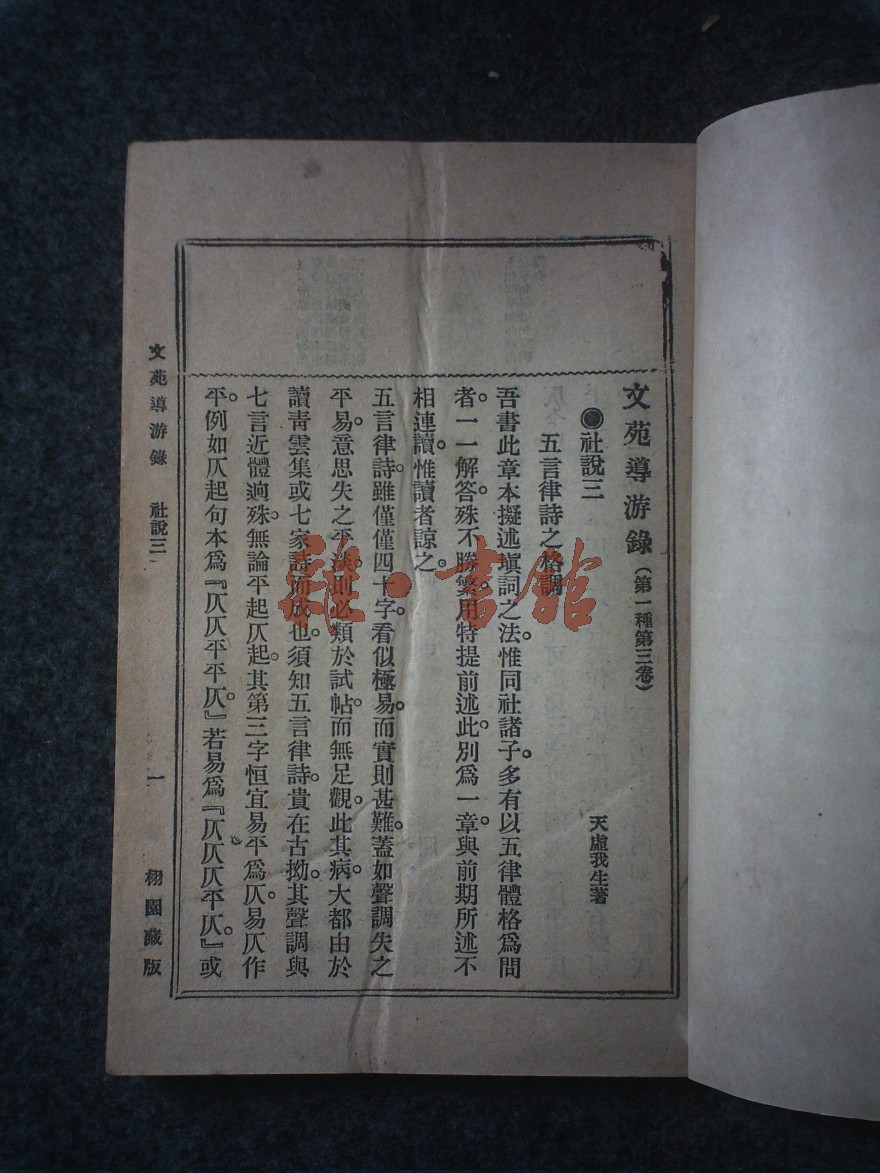 文苑導游錄（第一種第三卷）
●社說三
天虛我生著
五言律詩之格調
吾書此章本擬述塡詞之法。惟同社諸子。多有以五律體格爲問
者。一一解答。殊不勝繁。用特提前述此。別爲一章。與前期所述不
相連讀。惟讀者諒之。
五言律詩。雖僅僅四十字。看似極易。而實則甚難。蓋如聲調失之
平易。意思失之平淡。則必類於試帖。而無足觀。此其病。大都由於
讀靑雲集或七家詩而成也。須知五言律詩。貴在古拗。其聲調與
七言近體逈殊。無論平起仄起。其第三字恒宜易平爲仄。易仄作
平。例如仄起句本爲『仄仄平平仄。』若易爲『仄仄仄平仄。』或
文苑導游錄 社說三 一 栩園藏版
雜·書館